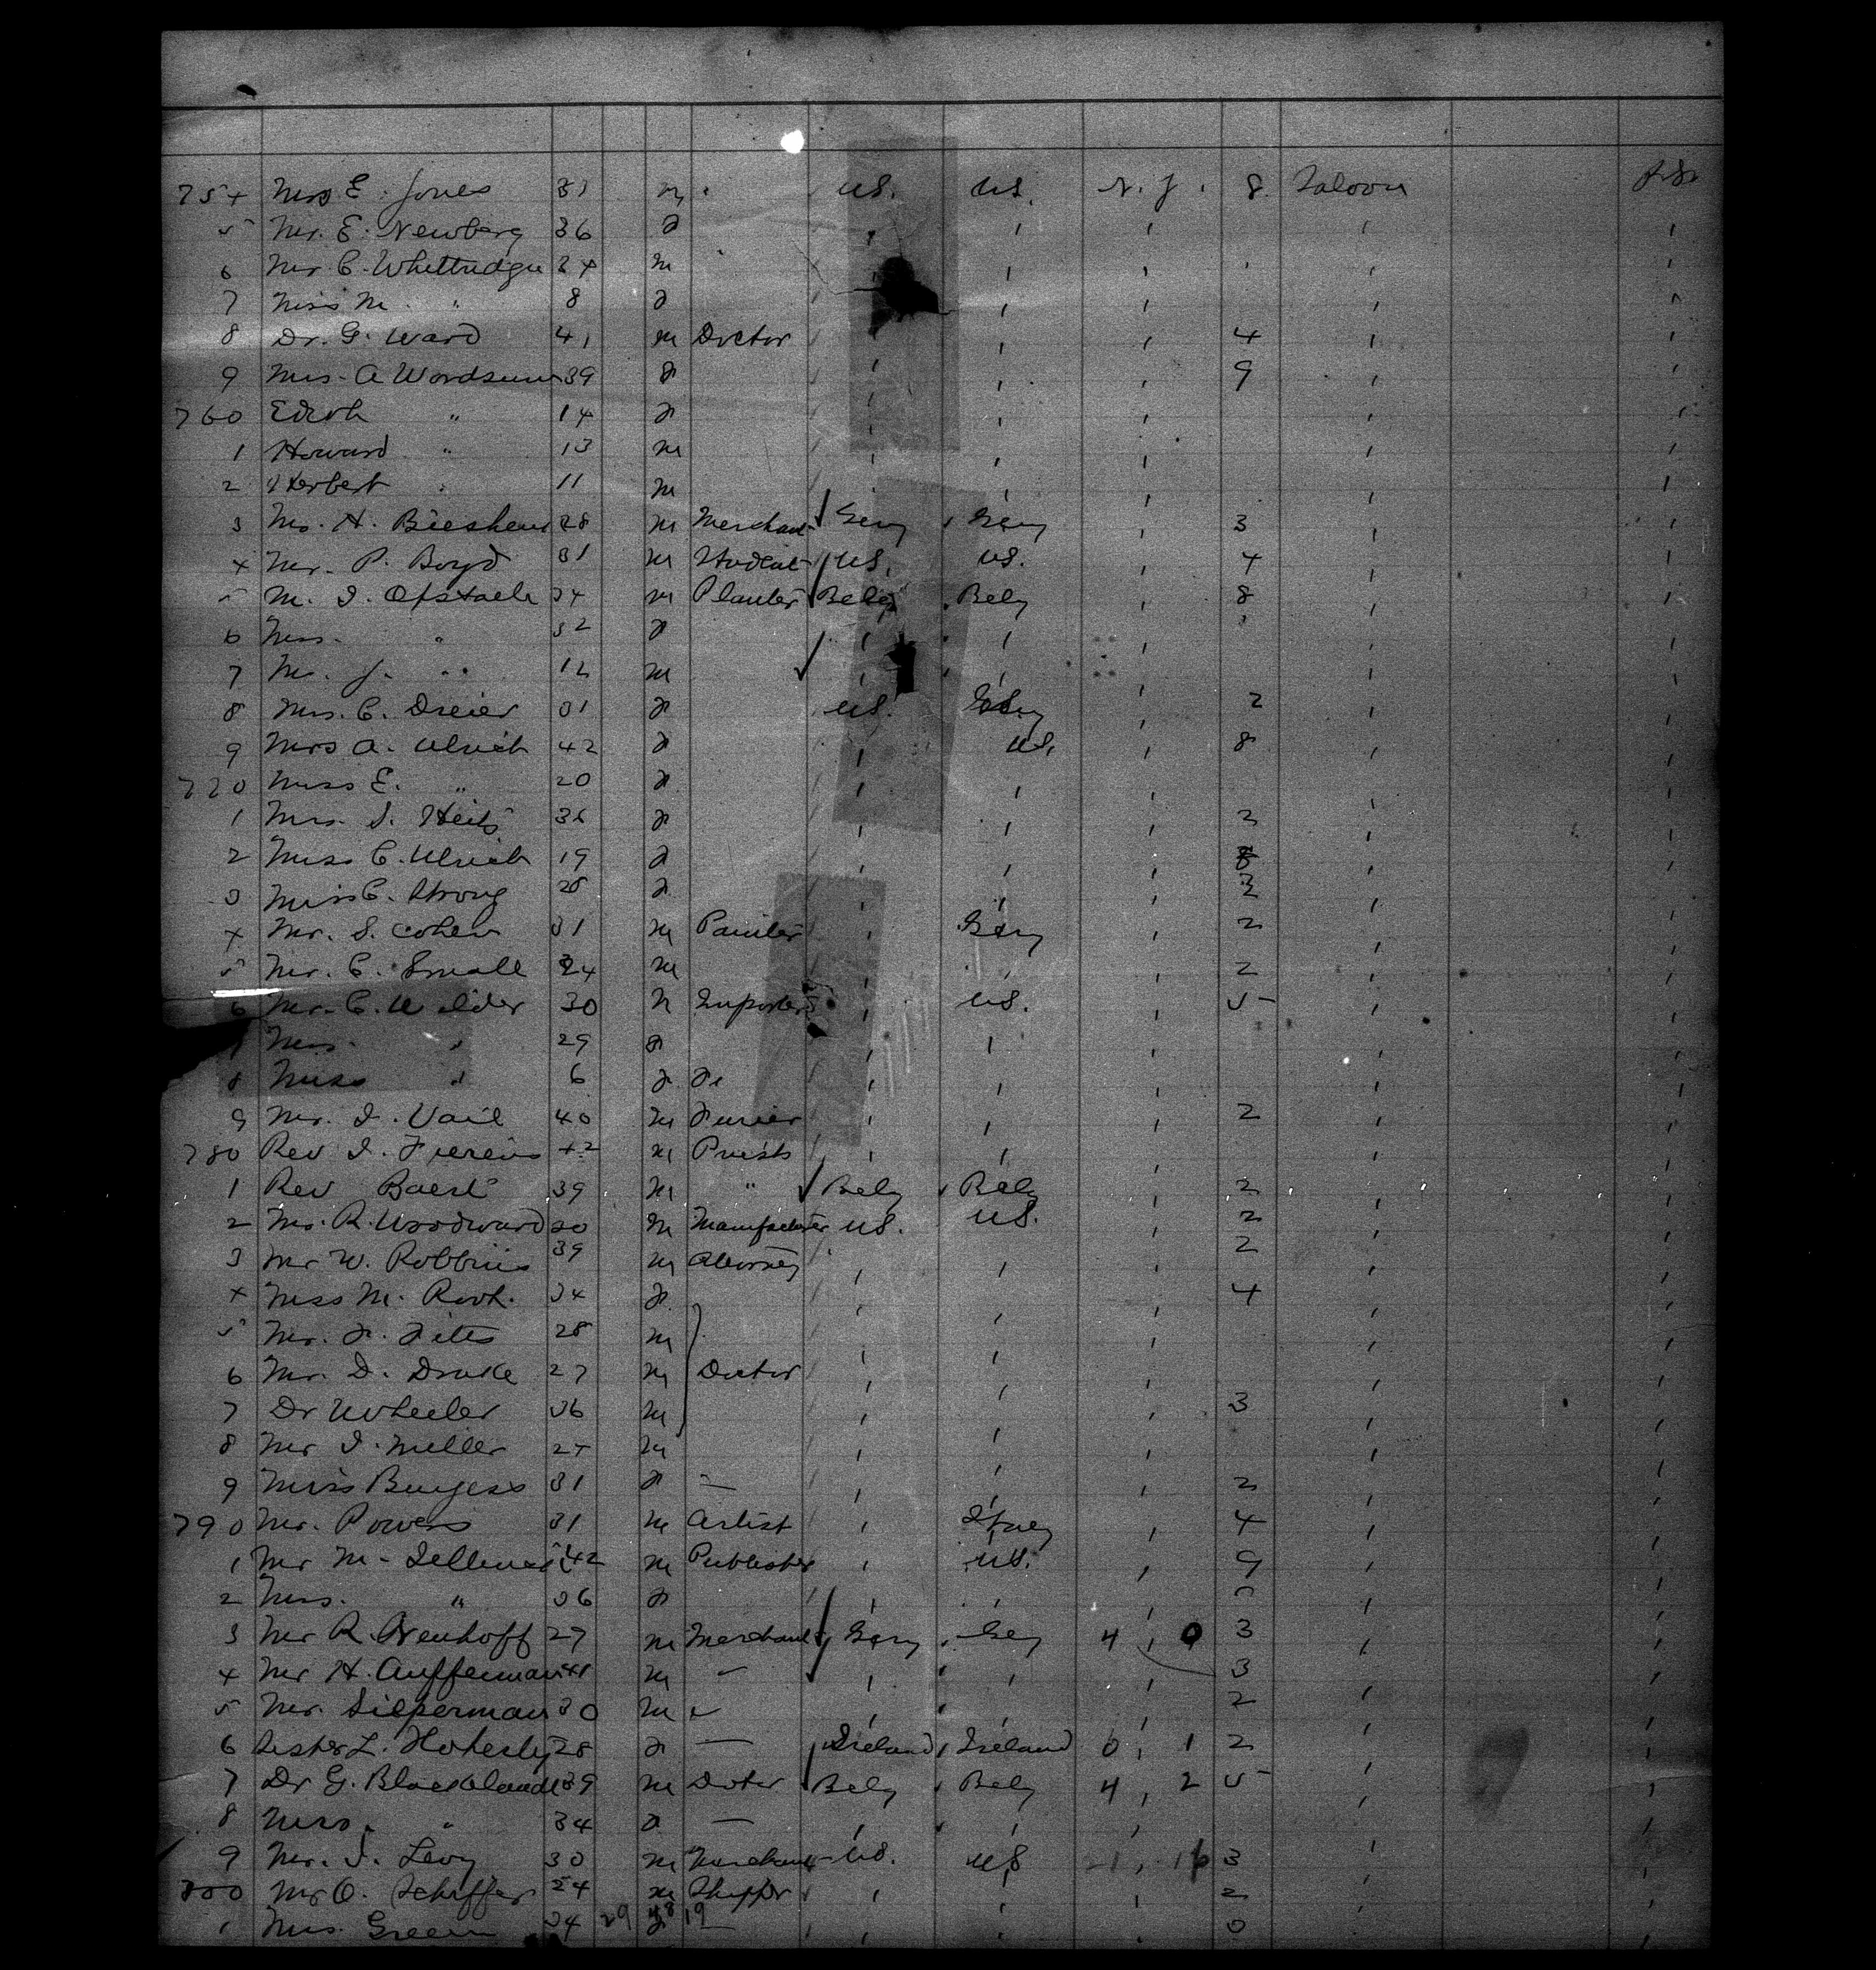 754 Mrs E. Jones 31 m " U.S. U.S. N.J. 8 Saloon
5 Mr. E. Newberg 36 f
6 Mr C. Whettredge 34 m
7 Miss M. " 8 f
8 Dr. G. Ward 41 m Doctor 4
9 Mrs. A 39 f 9
760 Edith " 14 f
1 Howard " 13 m
2 Herbert " 11 m
3 Mr. H. 28 m Merchant Gery Gery 3
4 Mr. P. Boyd 31 m Student U.S. U.S. 4
5 M. I. 34 m Planter Belg Belg 8
6 Mrs. " 32 f
7 M. J. " 12 m
8 Mrs. C. Dreier 31 f U.S. 2
9 Mrs A. Ulrich 42 f U.S. 8
770 Miss E. " 20 f
1 Mrs. S. 36 f 2
2 Miss C. Ulrich 19 f
3 Miss C. Strong 28 f 2
4 Mr. S. Cohen 31 m Painter Gery 2
5 Mr. C. Small 24 m 2
6 Mr. C. Wilder 30 m Importer U.S. 5
7 Mrs. " 29 f
8 Miss " 6 f
9 Mr. I. Vail 40 m Furier 2
780 Rev I. 42 m Priests
1 Rev Baert 39 m " Belg Belg 2
2 Mr. R. Woodward 30 m Manufacturer U.S. U.S. 2
3 Mr W. Robbins 39 m Attorney 2
4 Miss M. Roth. 34 f 4
5 Mr. F. Fites 28 m
6 Mr. D. Drake 27 m Doctor
7 Dr Wheeler 36 m 3
8 Mr I. Miller 24 m
9 Miss Burgess 31 f — 2
790 Mr. Powers 31 m Artist Italy 4
1 Mr M. 42 m Publisher U.S. 9
2 Mrs. " 36 f
3 Mr R. 29 m Merchant Gery Gery 4 0 3
4 Mr H. Auffermann 41 m " 3
5 Mr. Sieperman 30 m " 2
6 Sister L. 28 f — Ireland Ireland 0 1 2
7 Dr G. 39 m Doctor Belg Belg 4 2 5
8 Mrs. " 34 f —
9 Mr. I. Levy 30 m Merchant U.S. U.S. 3
800 Mr O. Schiffer 24 m 2
1 Mrs. Green 34 29 48 f 19 — 0